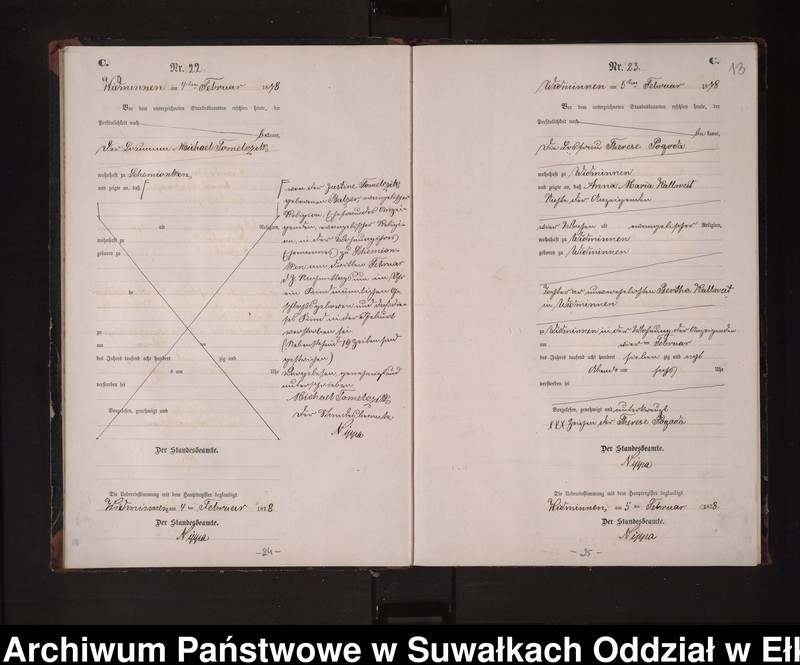 C.
Nr. 22.
Widminnen am 4ten Februar 1878
Vor dem unterzeichneten Standesbeamten erschien heute, der
Persönlichkeit nach
bekannt,
Der Losmann Michael Tometczik
wohnhaft zu Schemionken
und zeigte an, daß
alt Religion,
wohnhaft zu
geboren zu
zu
am
des Jahres tausend acht hundert zig und
um Uhr
verstorben sei
Vorgelesen, genehmigt und
von der Justine Tometczik
geborenen Balzer, evangelischer
Religion, Ehefrau des Anzei-
genden, evangelischer Religi-
on, in der Wohnung ihres
Ehemannes zu Schemion-
ken am dritten Februar
d. J. Nachmittags um ein Uhr
ein Kind männlichen Ge-
schlechts geboren und daß die-
ses Kind in der Geburt
verstorben sei
(Nebenstehend 19 Zeilen sind
gestrichen)
Vorgelesen, genehmigt und
unterschrieben
Michael Tometczik
Der Standesbeamte
Nippa
Der Standesbeamte.
Die Uebereinstimmung mit dem Hauptregister beglaubigt.
Widminnen, am 4 ten Februar 1878
Der Standesbeamte.
Nippa
-24-
C.
13
Nr. 23.
Widminnen am 5ten Februar 1878
Vor dem unterzeichneten Standesbeamten erschien heute, der
Persönlichkeit nach
bekannt,
Die Losfrau Therese Pogoda
wohnhaft zu Widminnen
und zeigte an, daß Anna Maria Kallweit
der Anzeigenden
vier Wochen alt evangelischer Religion,
wohnhaft zu Widminnen
geboren zu Widminnen
Tochter der unverehelichten Bertha Kallweit
in Widminnen
zu Widminnen in der Wohnung der Anzeigenden
am vier ten Februar
des Jahres tausend acht hundert sieben zig und acht
Abends um sechs Uhr
verstorben sei
Vorgelesen, genehmigt und unterkreuzt
XXX Zeichen der Therese Pogoda
Der Standesbeamte.
Nippa
Die Uebereinstimmung mit dem Hauptregister beglaubigt.
Widminnen, am 5 ten Februar 1878
Der Standesbeamte.
Nippa
-25-
Archiwum Państwowe w Suwałkach Oddział w Ełk